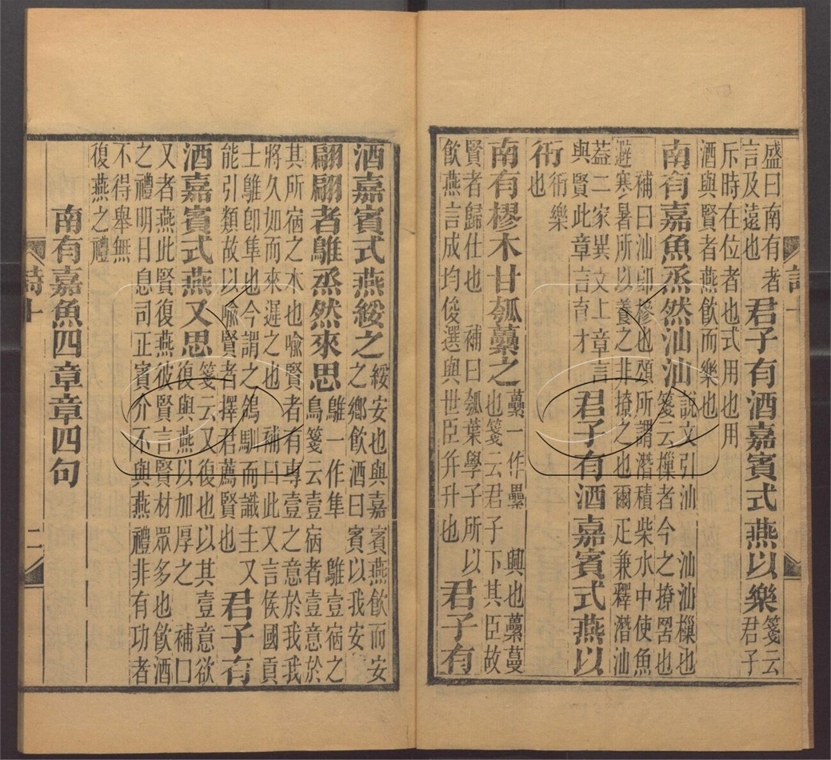 盛曰南有者
言及遠也
君子有酒嘉賓式燕以樂
箋云
君子
斥時在位者也式用也用
酒與賢者燕飲而樂也
南有嘉魚烝然汕汕
說文引汕 汕汕樔也
箋云樔者今之撩罟也
補曰汕卽槮也頍所謂潛積柴水中使魚
避寒暑所以養之非撩之也爾疋兼釋潛汕
葢二家異文上章言
與賢此章言育才
君子有酒嘉賓式燕以
衎
衎樂
也
南有樛木甘瓠虆之
虆一作纍 興也虆蔓
也箋云君子下其臣故
賢者歸仕也 補曰瓠葉學子所以
飲燕言成均俊選與世臣幷升也
君子有
詩十
酒嘉賓式燕綏之
綏安也與嘉賓燕飲而安
之鄉飲酒曰賓以我安
翩翩者鵻烝然來思
鵻一作隼 鵻壹宿之
鳥箋云壹宿者壹意於
其所宿之木也喻賢者有專壹之意於我我
將久如而來遲之也 補曰此又言候國貢
士鵻卽隼也今謂之鴿馴而識主又
能引類故以喻賢者擇君薦賢也
君子有
酒嘉賓式燕又思
箋云又復也以其壹意欲
復與燕以加厚之 補曰
又者燕此賢復燕彼賢言賢材眾多也飲酒
之禮明日息司正賓介不與燕禮非有功者
不得舉無
復燕之禮
南有嘉魚四章章四句
詩十 二